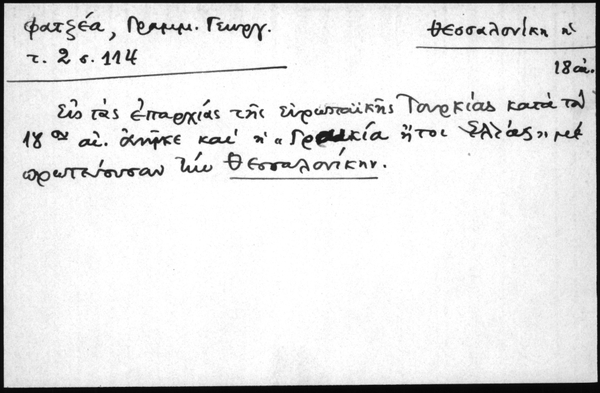 Φατζέα, Γραμμ. Γεωγρ.
τ. 2 σ. 114
Θεσσαλονίκη ἡ
18 αἰ.
Εἰς τὰς ἐπαρχίας τῆς εὐρωπαϊκῆς Τουρκίας κατὰ τὸν
18ον αἰ. ἀνῆκε καὶ ἡ «Γραικία ἤτοι Ἑλλάς» μὲ
πρωτεύουσαν τὴν Θεσσαλονίκην.